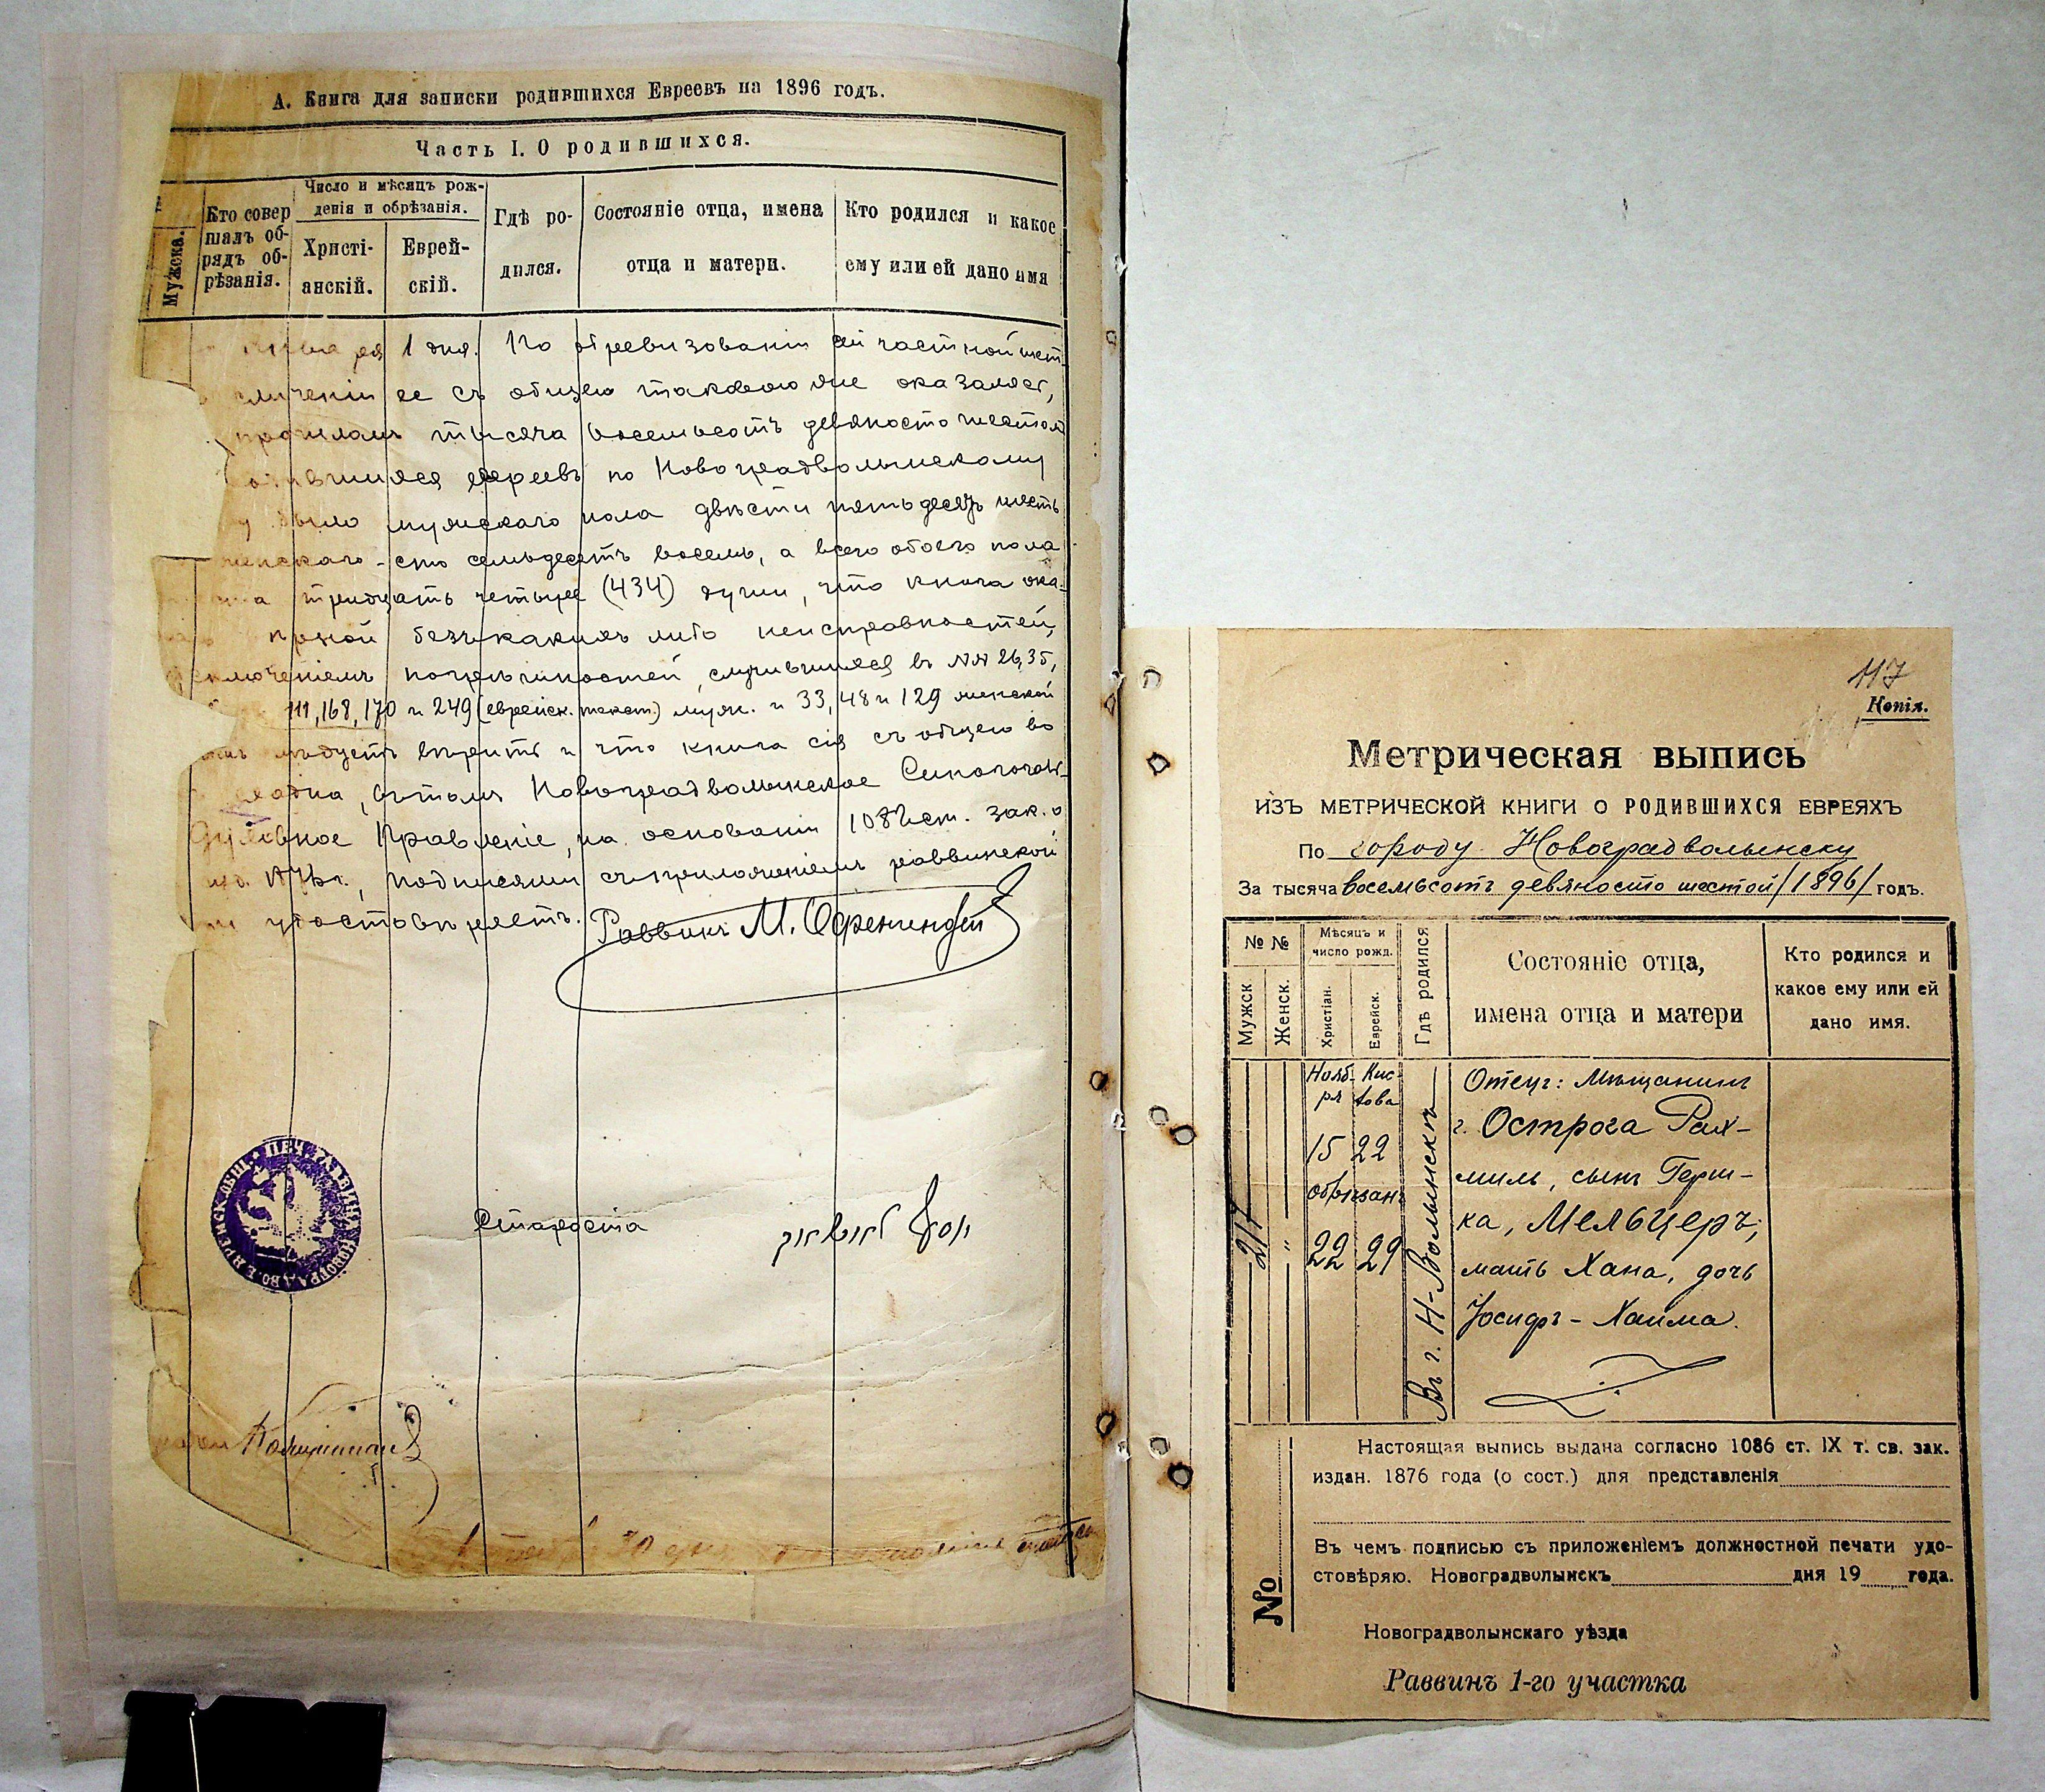 А. Книга для записки родившихся Евреевъ на 1896 годъ.
Часть I. О родившихся.
Мужска.
Кто совер
шалъ об-
рядъ об-
рѣзанія.
Число и мѣсяцъ рож-
денія и обрѣзанія.
Христі-
анскій.
Еврей-
скій.
Гдѣ ро-
дился.
Состояніе отца, имена
отца и матери.
Кто родился и какое
ему или ей дано имя
1 дня. По обревизованіи сей частной
сличеніи ее съ общею таковою же оказалось,
прошломъ тысяча восемьсотъ девяносто шестомъ
евреевъ по Новоградволынскому
было мужскаго пола двѣсти пятьдесятъ шесть
женскаго - сто семьдесятъ восемь, а всего обоего пола
тридцать четыре (434) души, что книга ока-
безъ какихъ либо неисправностей,
погрѣшностей, случившихся въ №№ 26, 35,
111, 168, 170 и 249 (еврейск. текст.) муж. и 33, 48 и 129 женской
и что книга сія съ общею во
, въ томъ Новоградволынское
Духовное Правленіе, на основаніи ст. зак. о
подписями съ приложеніемъ раввинской
удостовѣряетъ. Раввинъ М.
Староста
30
117
Копія.
Метрическая выпись
ИЗЪ МЕТРИЧЕСКОЙ КНИГИ О РОДИВШИХСЯ ЕВРЕЯХЪ
По городу Новоградволынску
За тысяча восемьсотъ девяносто шестой /1896/ годъ.
№ №
Мужск.
Женск.
Мѣсяцъ и
число рожд.
Христіан.
Еврейск.
Гдѣ родился
Состояніе отца,
имена отца и матери
Кто родился и
какое ему или ей
дано имя.
217
"
Нояб- Кис-
ря лова
15 22
обрѣзан
22 29
Въ г. Н-Волынскъ
Отецъ: Мѣщанинъ
г. Острога Рах-
миль, сынъ Герш-
ка, Мельцеръ;
мать Хана, дочь
Іосифъ-Хаима.
Настоящая выпись выдана согласно 1086 ст. IX т. св. зак.
издан. 1876 года (о сост.) для представленія
Въ чемъ подписью съ приложеніемъ должностной печати удо-
стовѣряю. Новоградволынскъ дня 19 года.
№
Новоградволынскаго уѣзда
Раввинъ 1-го участка